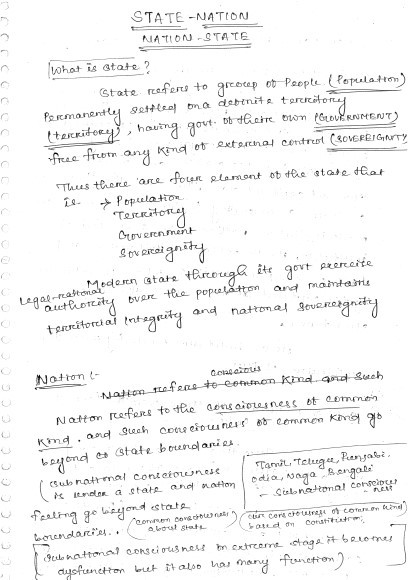 STATE-NATION
NATION-STATE
What is state?
State refers to group of People (Population)
Permanently settled on a definite territory
(territory), having govt. of their own (GOVERNMENT)
free from any kind of external control (SOVEREIGNTY)
Thus there are four element of the state that
is → Population
Territory
Government
Sovereignity
Modern state through its govt exercise
Legal-rational
authority over the population and maintains
territorial Integrity and national sovereignity
Nation :-
conscious
Nation refers to common kind and such
Nation refers to the consciousness of common
kind. and such consciousness of common kind go
beyond to state boundaries.
(sub national consciousness
is under a state and nation
feeling go beyond state
boundaries..
Tamil, Telugu, Punjabi,
odia, Naga, Bengali
- subnational conscious
ness
(common consciousness
about state)
(our consciousness of common kind)
based on constitution
[subnational consciousness on extreme stage it becomes
dysfunction but it also has many function]